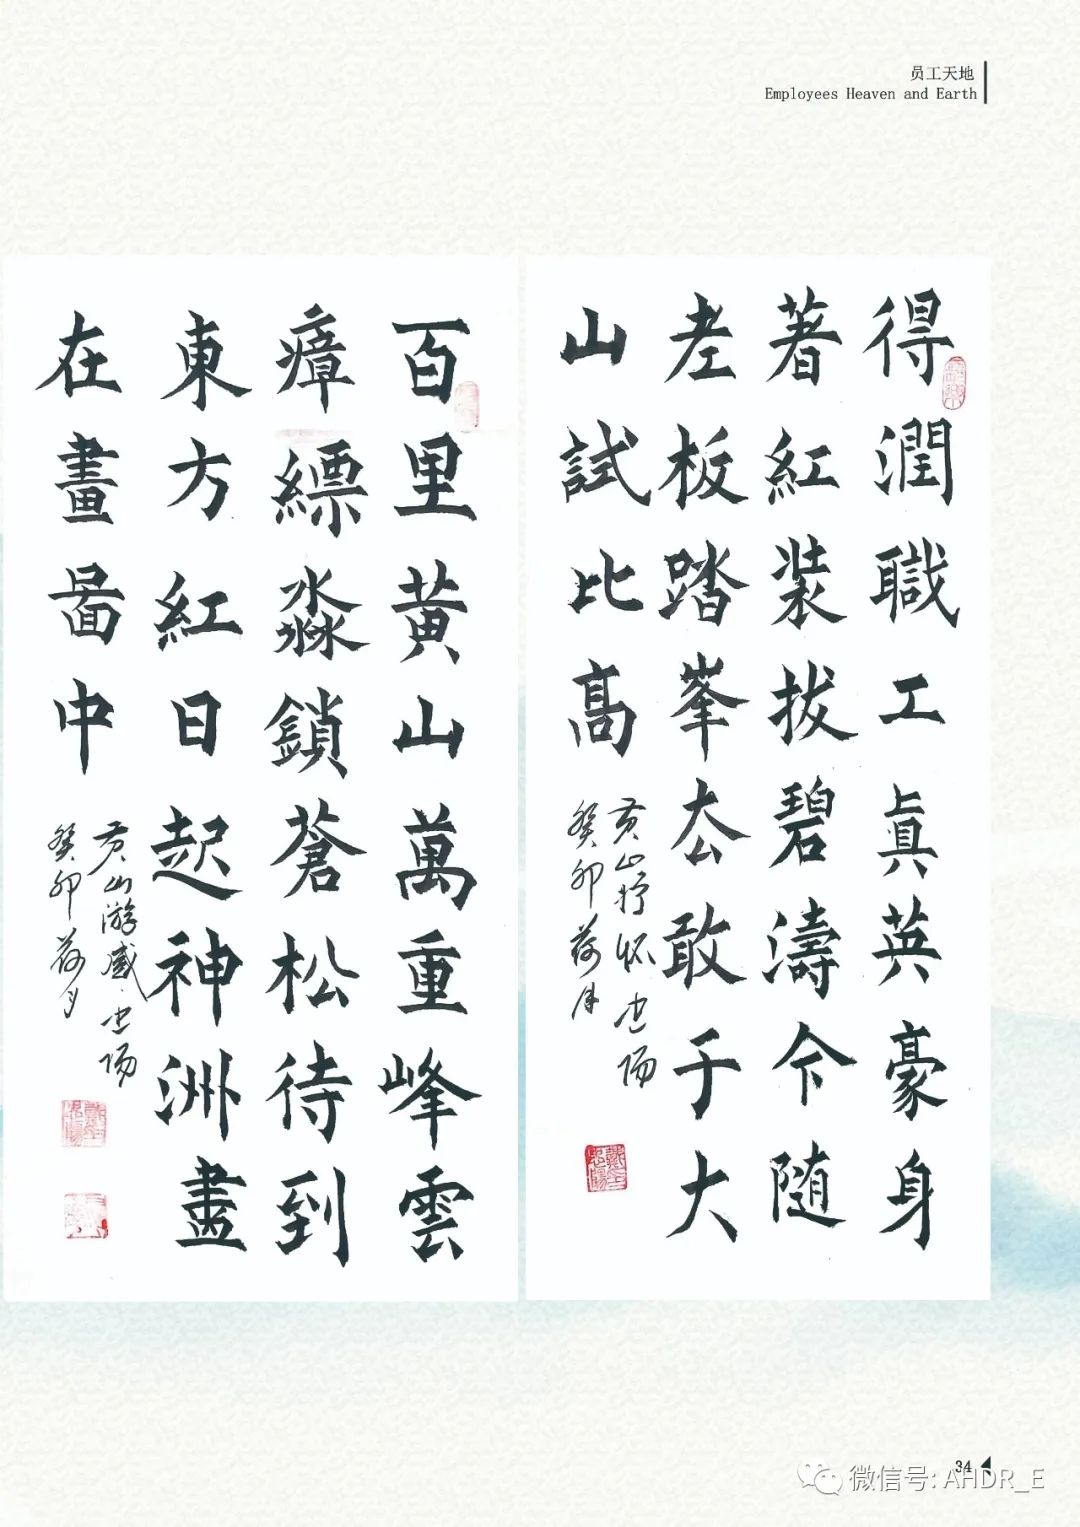 员工天地
Employees Heaven and Earth
得潤職工眞英豪身
著紅装拔碧濤今随
老板踏峯去敢于大
山試比高
黄山抒怀 忠陽
癸卯荷月
百里黄山萬重峰雲
瘴縹淼鎖蒼松待到
東方紅日起神洲盡
在畫啚中
黄山游感 忠陽
癸卯荷月
34
微信号: AHDR_E